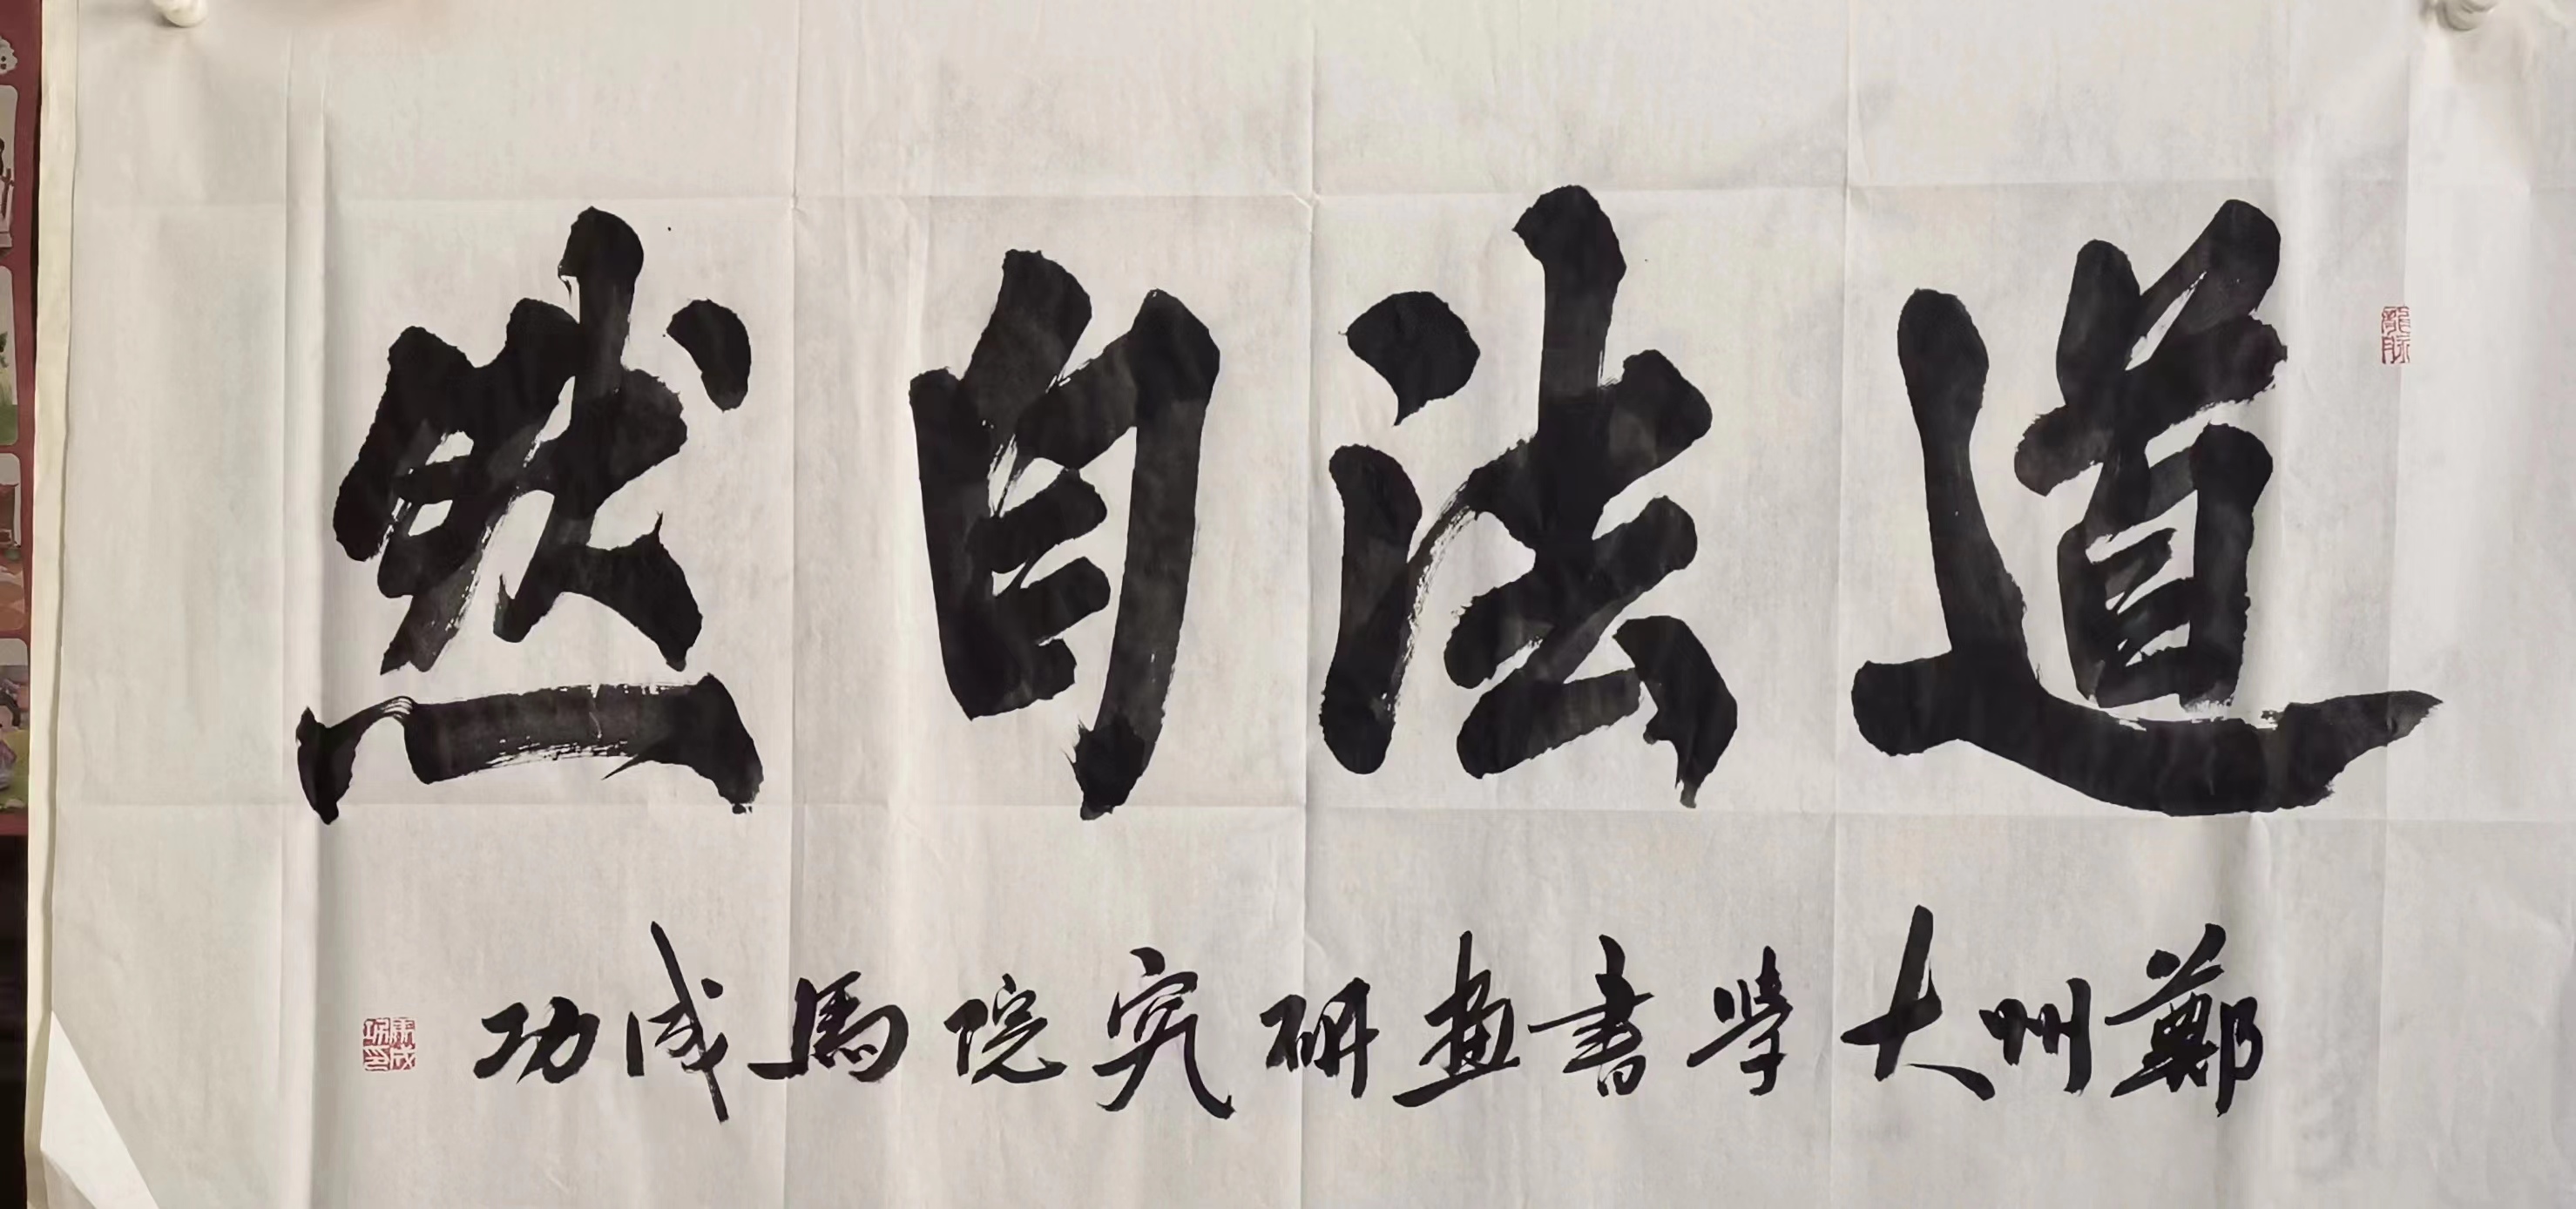 道法自然
鄭州大學書画研究院馬成功